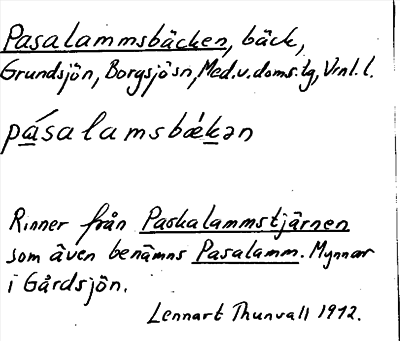 Pasalammsbäcken, bäck,
Grundsjön, Borgsjösn, Med.v.doms.lg, Vrnl. l.
pásalamsbǽkən
Rinner från Paskalammstjärnen
som även benämns Pasalamm. Mynnar
i Gårdsjön.
Lennart Thunvall 1972.